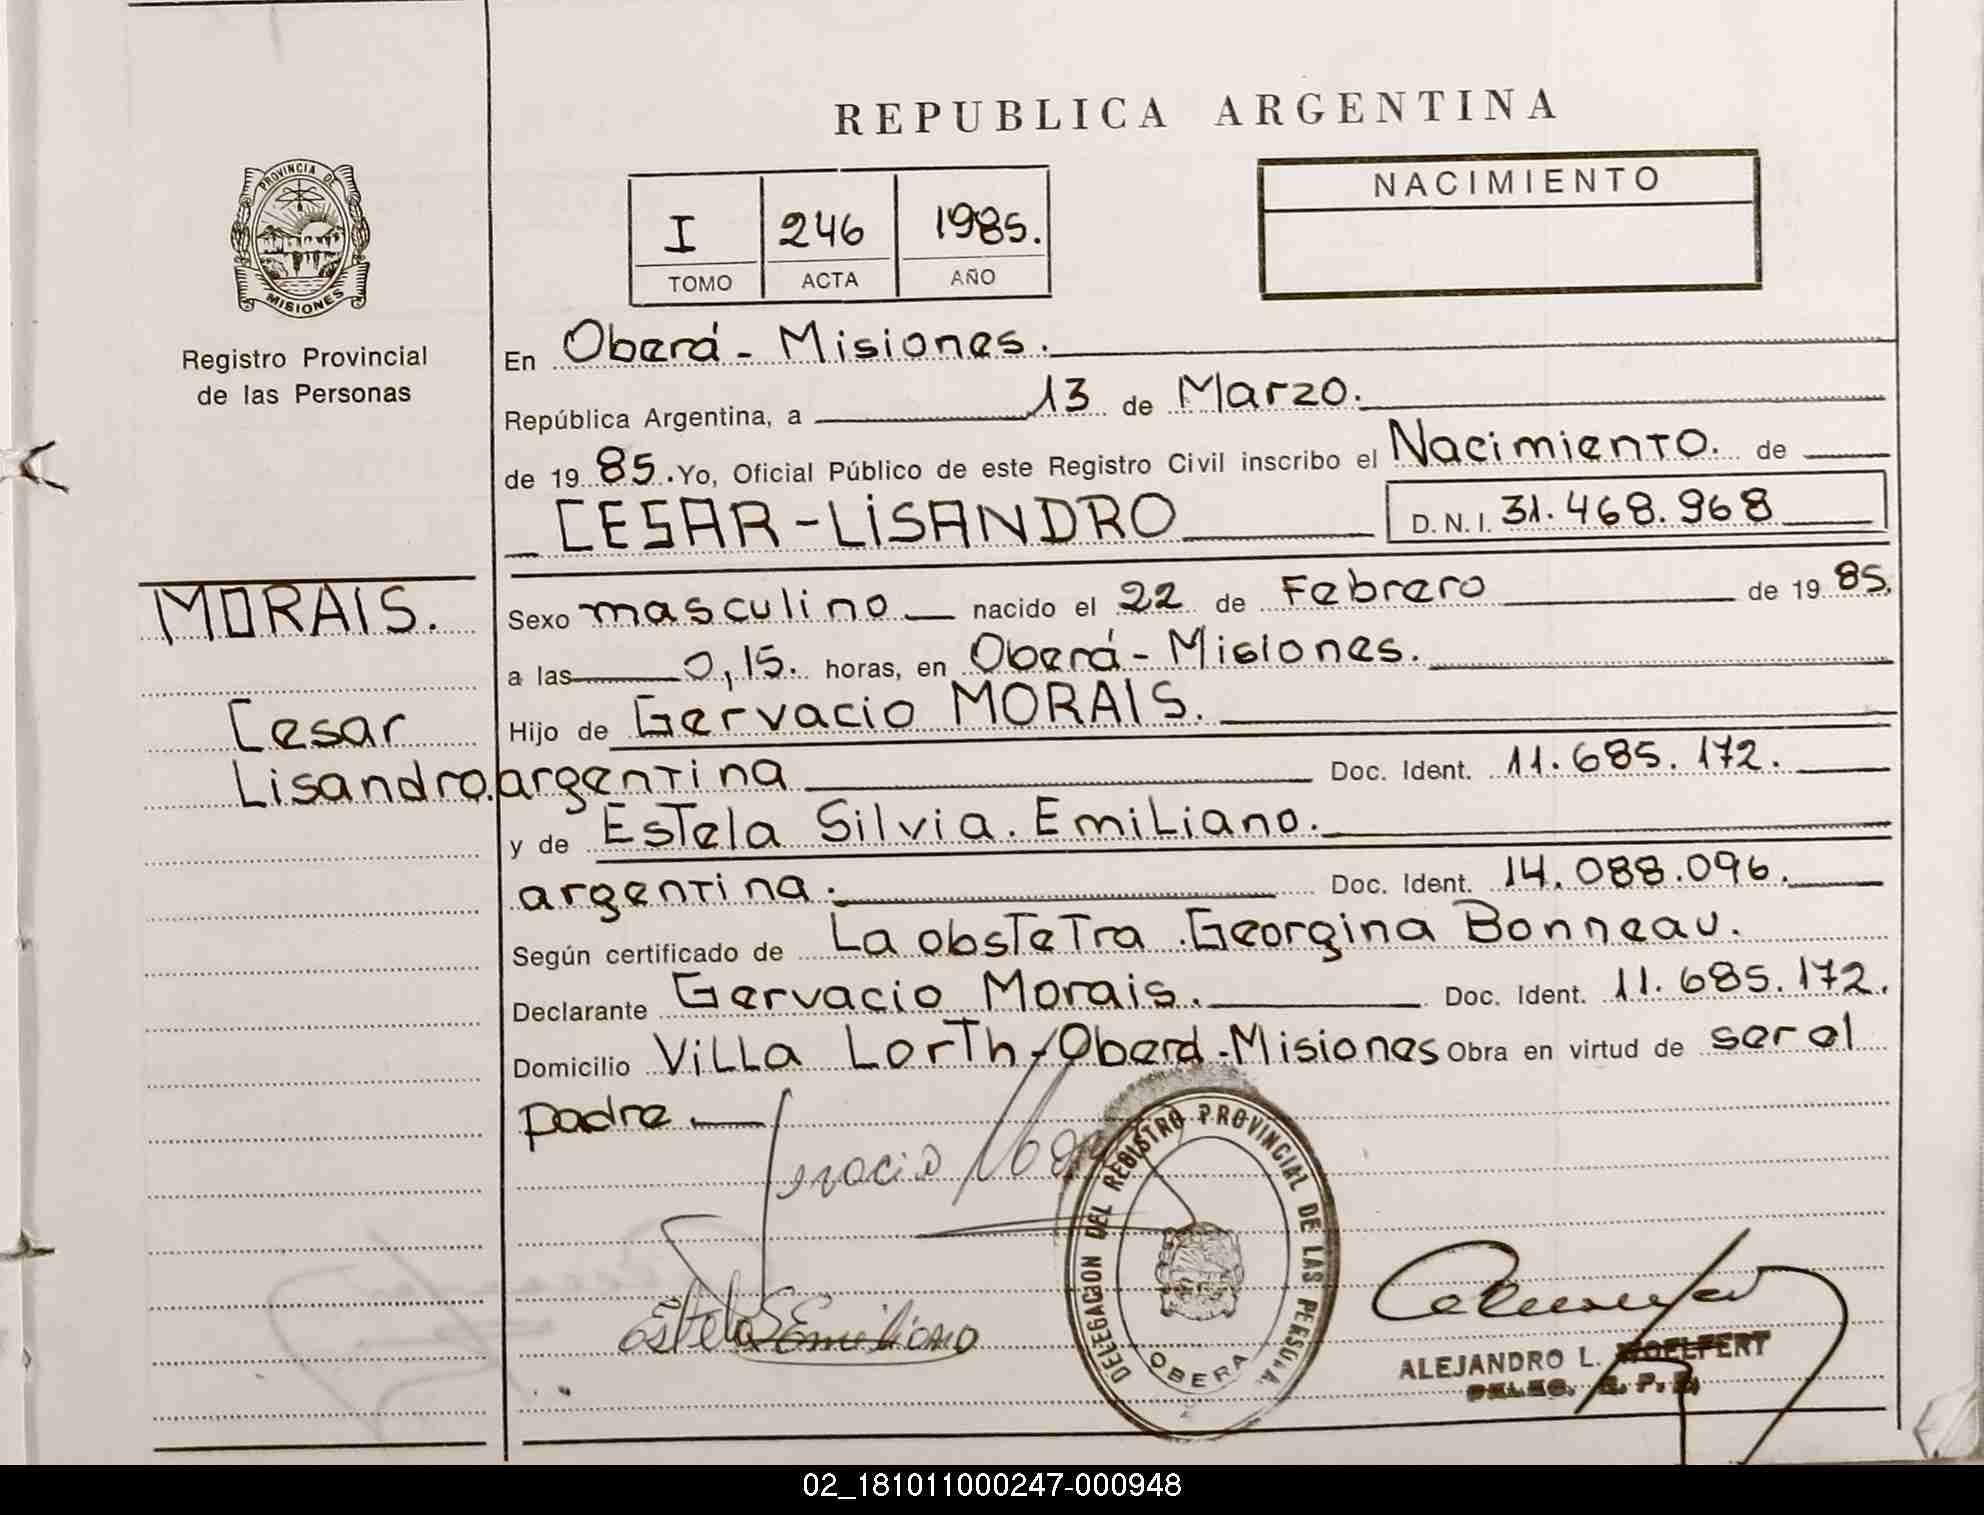 REPUBLICA ARGENTINA
PROVINCIA DE
MISIONES
Registro Provincial
de las Personas
I 246 1985.
TOMO ACTA AÑO
NACIMIENTO
En Oberá - Misiones.
República Argentina, a 13 de Marzo.
de 19 85. Yo, Oficial Público de este Registro Civil inscribo el Nacimiento. de
CESAR - LISANDRO D. N. I. 31.468.968
MORAIS.
Cesar
Lisandro.
Sexo masculino nacido el 22 de Febrero de 19 85.
a las 0,15. horas, en Oberá - Misiones.
Hijo de Gervacio MORAIS.
argentina Doc. Ident. 11.685.172.
y de Estela Silvia. Emiliano.
argentina. Doc. Ident. 14.088.096.
Según certificado de La obstetra .Georgina Bonneau.
Declarante Gervacio Morais. Doc. Ident. 11.685.172.
Domicilio Villa Lorth - Oberá - Misiones Obra en virtud de ser el
padre
DELEGACION DEL REGISTRO PROVINCIAL DE LAS PERSONA
OBERA
Estela S Emiliano
ALEJANDRO L. WOELFERT
DELEG. R. P. P.
02_181011000247-000948